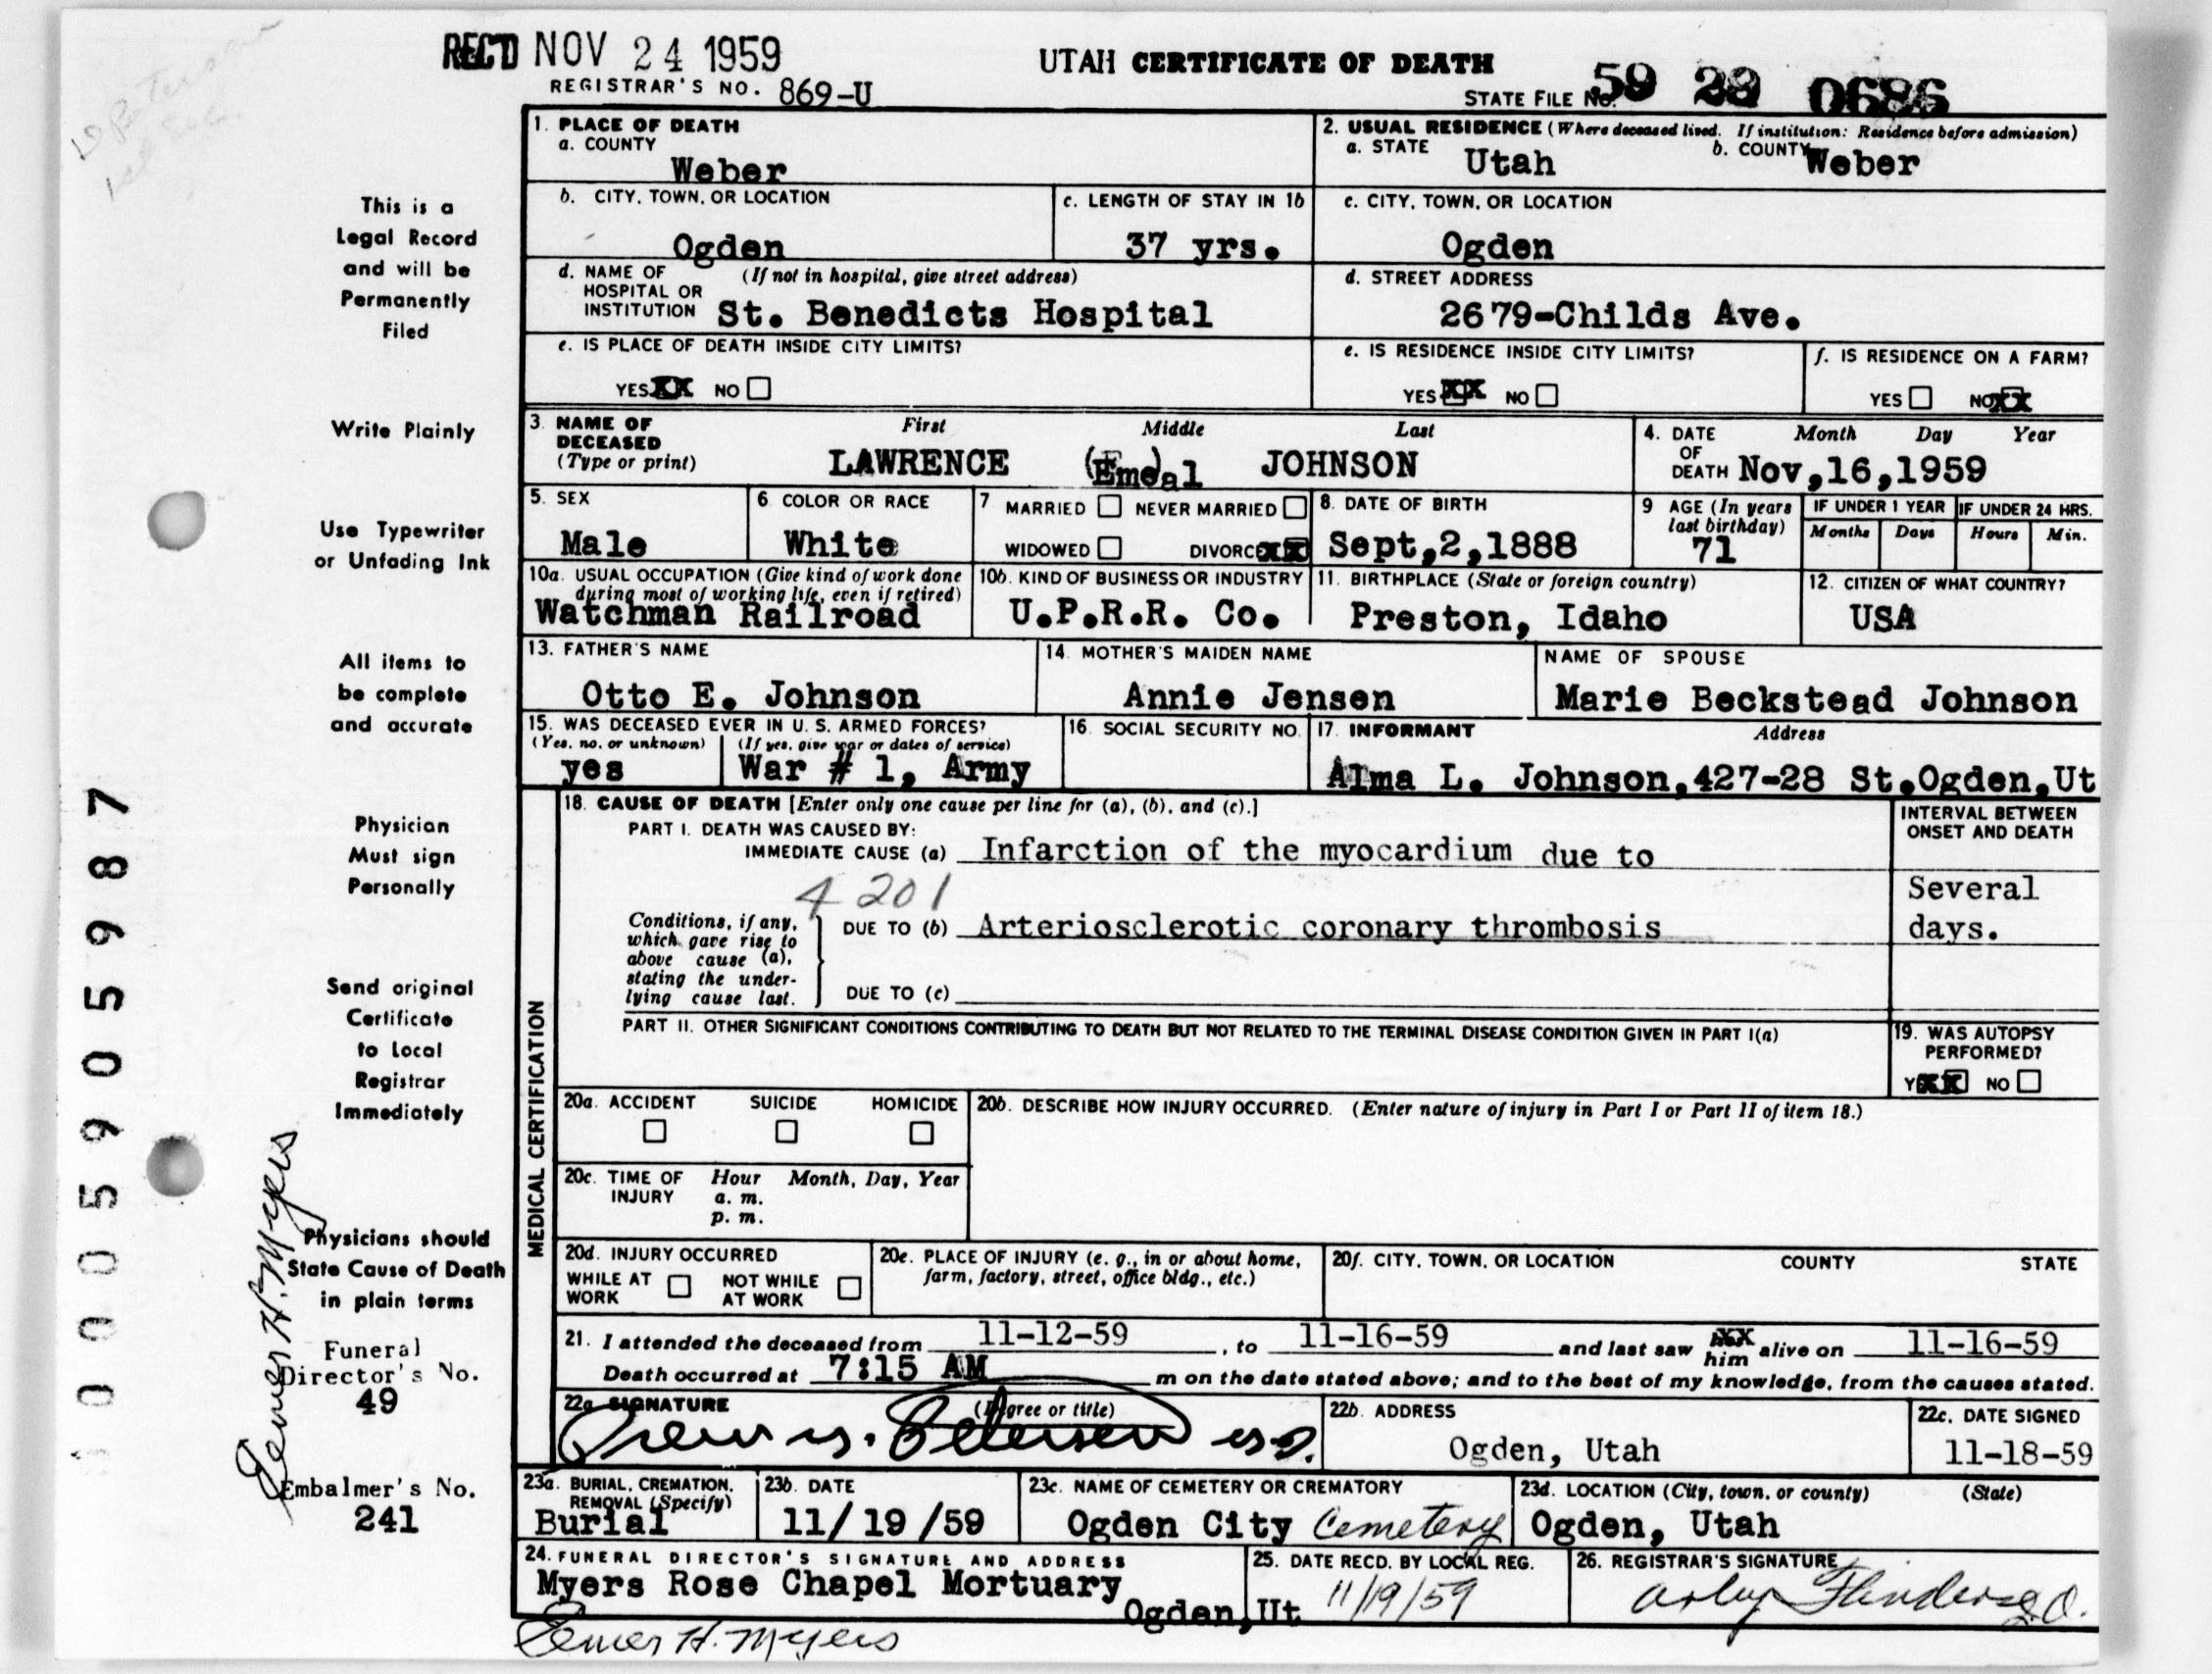 REC'D NOV 24 1959
REGISTRAR'S NO. 869-U
UTAH CERTIFICATE OF DEATH
STATE FILE No. 59 0686
1. PLACE OF DEATH
a. COUNTY
Weber
2. USUAL RESIDENCE (Where deceased lived. If institution: Residence before admission)
a. STATE Utah b. COUNTY Weber
b. CITY, TOWN, OR LOCATION
Ogden
c. LENGTH OF STAY IN 1b
37 yrs.
c. CITY, TOWN, OR LOCATION
Ogden
d. NAME OF HOSPITAL OR INSTITUTION (If not in hospital, give street address)
St. Benedicts Hospital
d. STREET ADDRESS
2679-Childs Ave.
e. IS PLACE OF DEATH INSIDE CITY LIMITS?
YES XX NO
e. IS RESIDENCE INSIDE CITY LIMITS?
YES XX NO
f. IS RESIDENCE ON A FARM?
YES NO XX
3. NAME OF DECEASED (Type or print)
First Middle Last
LAWRENCE (Emeal) JOHNSON
4. DATE OF DEATH Month Day Year
Nov,16,1959
5. SEX
Male
6. COLOR OR RACE
White
7 MARRIED NEVER MARRIED
WIDOWED DIVORCED XX
8. DATE OF BIRTH
Sept,2,1888
9 AGE (In years last birthday)
71
IF UNDER 1 YEAR
Months Days
IF UNDER 24 HRS.
Hours Min.
10a. USUAL OCCUPATION (Give kind of work done during most of working life, even if retired)
Watchman Railroad
10b. KIND OF BUSINESS OR INDUSTRY
U.P.R.R. Co.
11. BIRTHPLACE (State or foreign country)
Preston, Idaho
12. CITIZEN OF WHAT COUNTRY?
USA
13. FATHER'S NAME
Otto E. Johnson
14. MOTHER'S MAIDEN NAME
Annie Jensen
NAME OF SPOUSE
Marie Beckstead Johnson
15. WAS DECEASED EVER IN U. S. ARMED FORCES?
(Yes, no, or unknown) (If yes, give war or dates of service)
yes War # 1, Army
16. SOCIAL SECURITY NO.
17. INFORMANT Address
Alma L. Johnson,427-28 St.Ogden,Ut
MEDICAL CERTIFICATION
18. CAUSE OF DEATH [Enter only one cause per line for (a), (b), and (c).]
PART I. DEATH WAS CAUSED BY:
IMMEDIATE CAUSE (a) Infarction of the myocardium due to
4201
Conditions, if any, which gave rise to above cause (a), stating the underlying cause last.
DUE TO (b) Arteriosclerotic coronary thrombosis
DUE TO (c)
INTERVAL BETWEEN ONSET AND DEATH
Several
days.
PART II. OTHER SIGNIFICANT CONDITIONS CONTRIBUTING TO DEATH BUT NOT RELATED TO THE TERMINAL DISEASE CONDITION GIVEN IN PART I(a)
19. WAS AUTOPSY PERFORMED?
YES XX NO
20a. ACCIDENT SUICIDE HOMICIDE
20b. DESCRIBE HOW INJURY OCCURRED. (Enter nature of injury in Part I or Part II of item 18.)
20c. TIME OF INJURY Hour Month, Day, Year
a. m.
p. m.
20d. INJURY OCCURRED
WHILE AT WORK NOT WHILE AT WORK
20e. PLACE OF INJURY (e. g., in or about home, farm, factory, street, office bldg., etc.)
20f. CITY, TOWN, OR LOCATION COUNTY STATE
21. I attended the deceased from 11-12-59, to 11-16-59 and last saw her him alive on 11-16-59
Death occurred at 7:15 AM m on the date stated above; and to the best of my knowledge, from the causes stated.
22a. SIGNATURE (Degree or title)
Petersen M.D.
22b. ADDRESS
Ogden, Utah
22c. DATE SIGNED
11-18-59
23a. BURIAL, CREMATION, REMOVAL (Specify)
Burial
23b. DATE
11/19/59
23c. NAME OF CEMETERY OR CREMATORY
Ogden City Cemetery
23d. LOCATION (City, town, or county) (State)
Ogden, Utah
24. FUNERAL DIRECTOR'S SIGNATURE AND ADDRESS
Myers Rose Chapel Mortuary
Ogden,Ut
25. DATE RECD. BY LOCAL REG.
11/19/59
26. REGISTRAR'S SIGNATURE
Elmer H. Myers
This is a
Legal Record
and will be
Permanently
Filed
Write Plainly
Use Typewriter
or Unfading Ink
All items to
be complete
and accurate
Physician
Must sign
Personally
Send original
Certificate
to Local
Registrar
Immediately
Physicians should
State Cause of Death
in plain terms
Funeral
Director's No.
49
Embalmer's No.
241
Elmer H. Myers
005905987